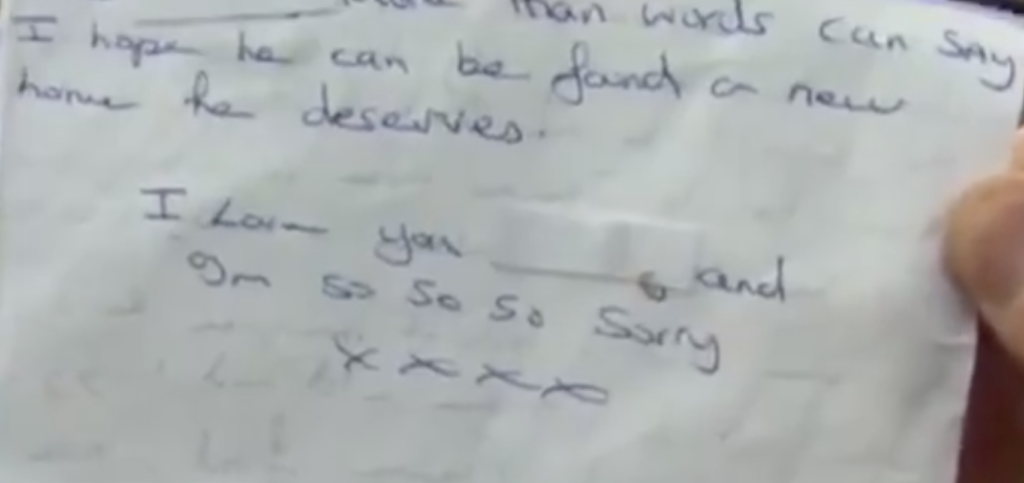 than words can say
I hope he can be found a new
home he deserves.
I Love you and
Im so so so sorry
x x x x